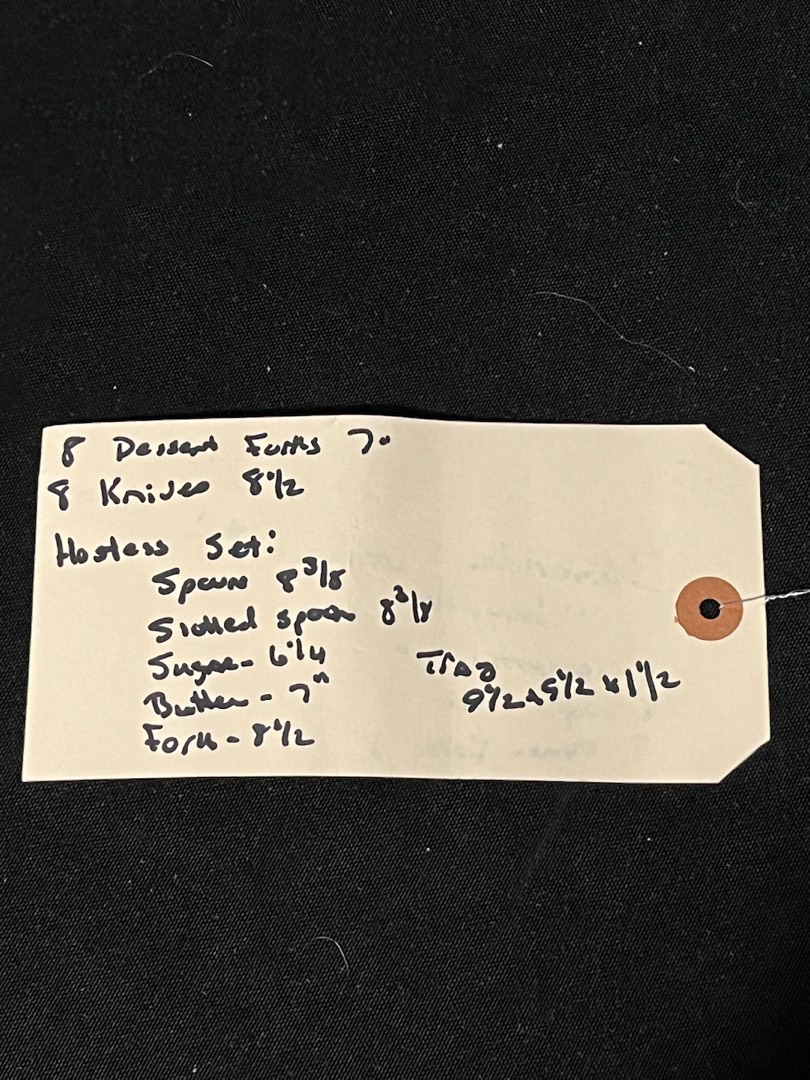 8 Dessert Forks 7"
8 Knives 8 1/2
Hostess Set:
Spoon 8 3/8
Slotted spoon 8 3/8
Sugar- 6 1/4
Butter - 7"
Fork - 8 1/2
Tray
9 1/2 x 5 1/2 x 1 1/2